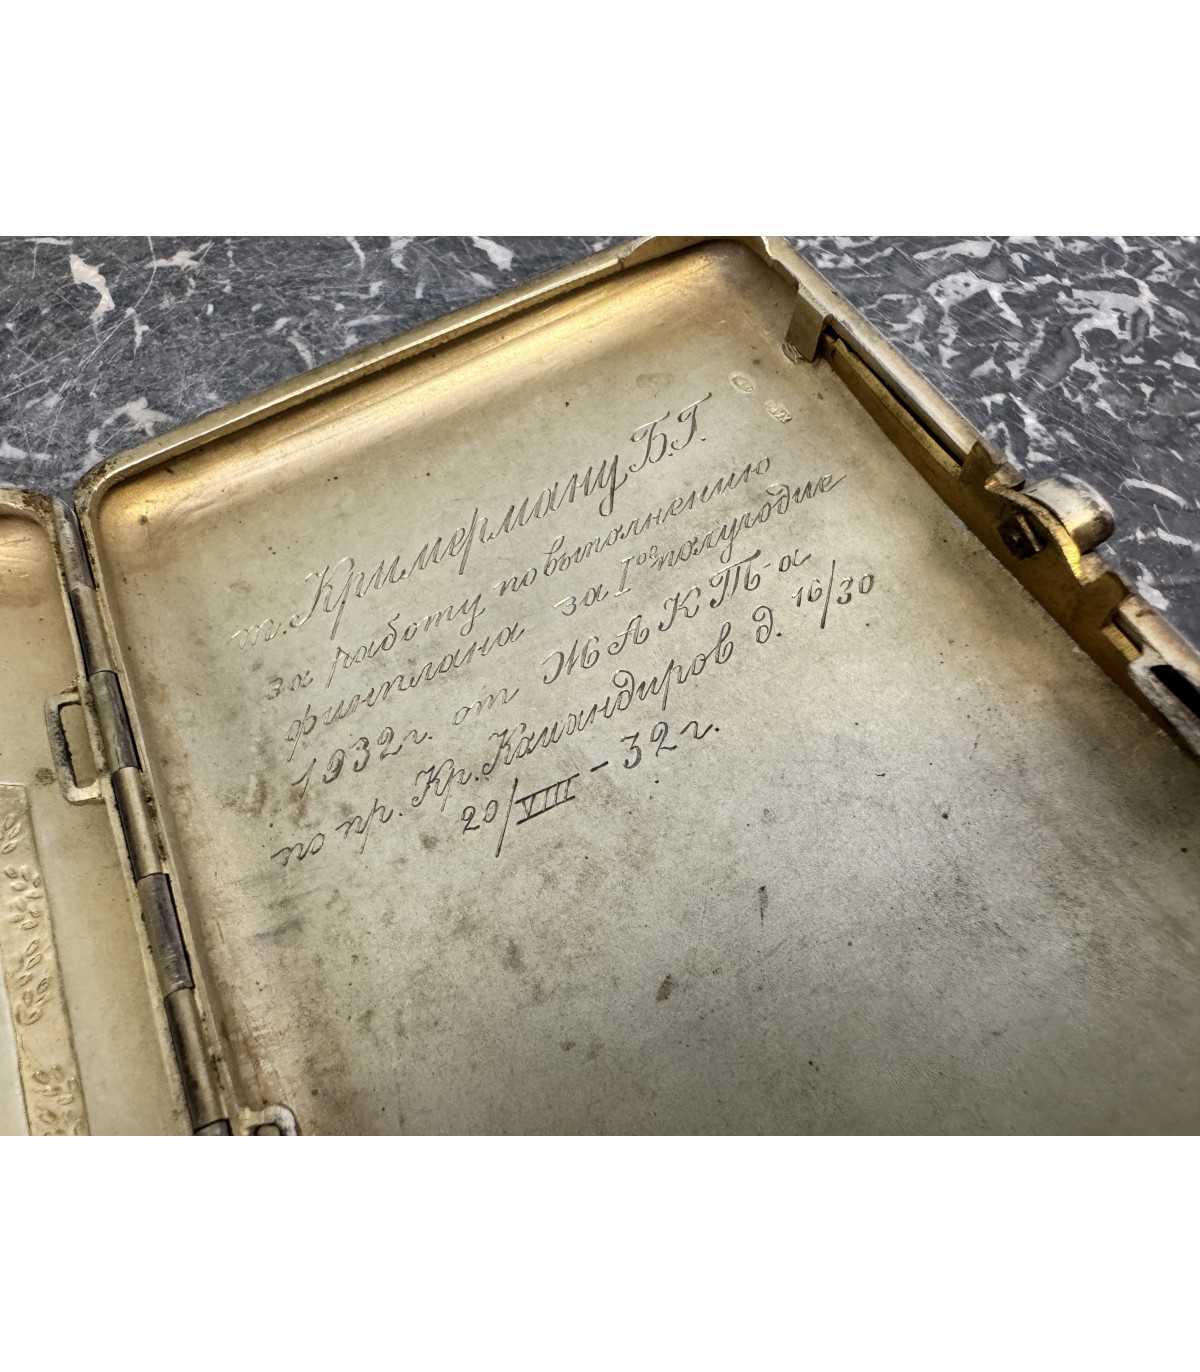 т. Кримерману Б.Г.
за работу по выполнению
финплана за I ое полугодие
1932 г. от ЖАКТ-а
по пр. Кр. Камандиров д. 16/30
20/VIII - 32 г.